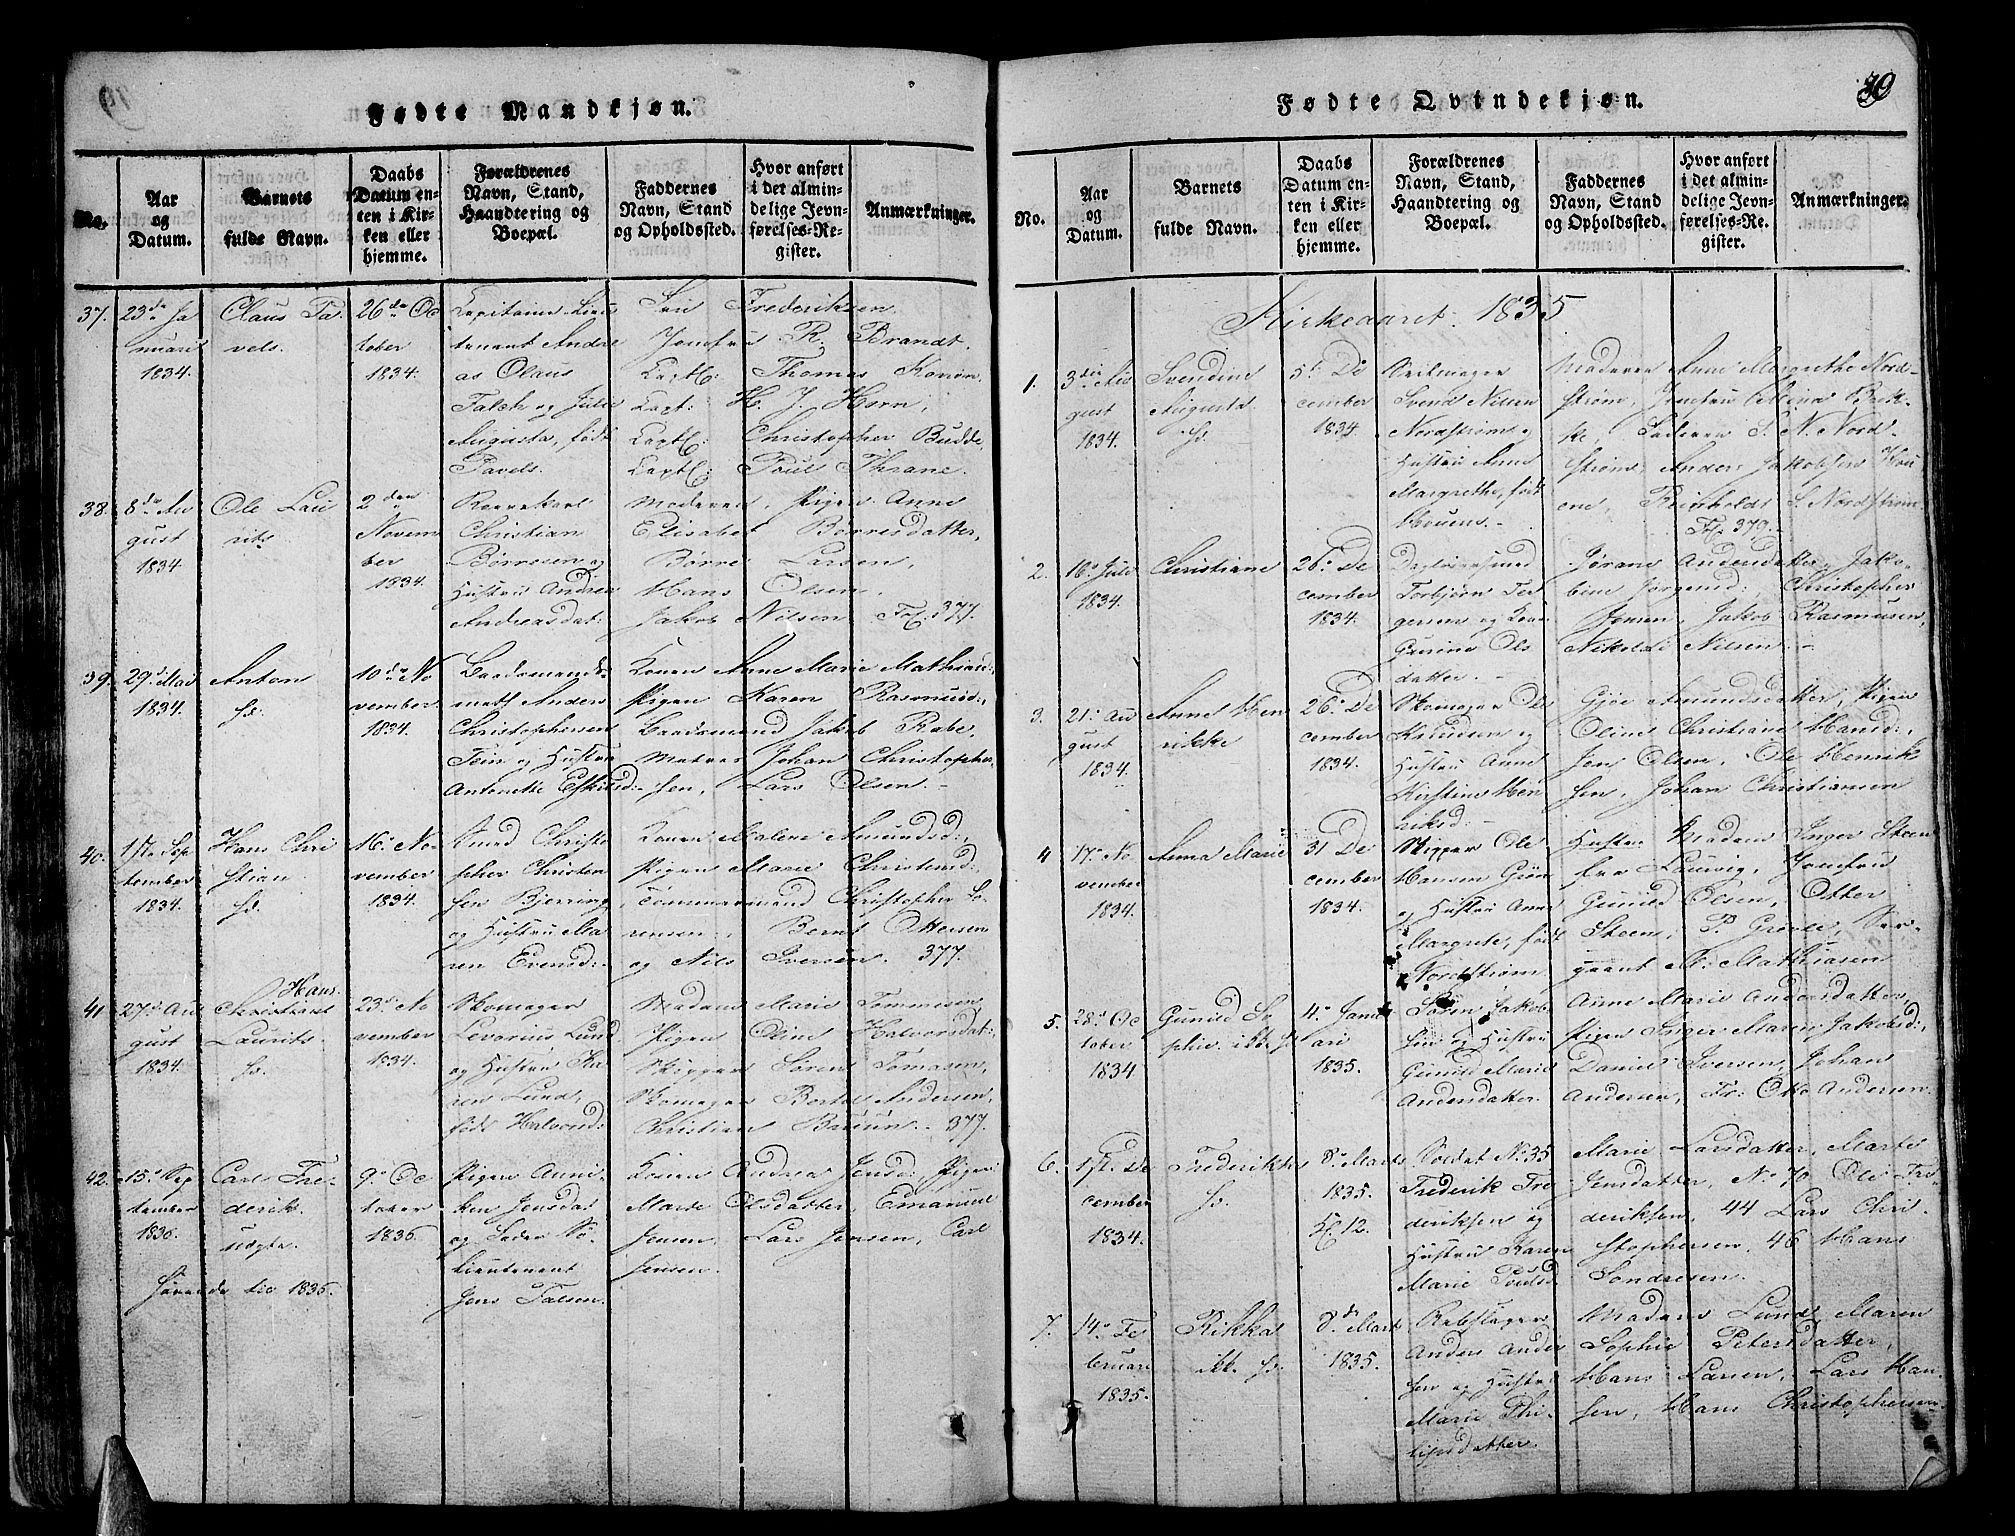 Fødte Mandkjøn.
No.
Aar og Datum.
Barnets fulde Navn.
Daabs Datum enten i Kirken eller hjemme.
Forældrenes Navn, Stand, Haandtering og Boepæl.
Faddernes Navn, Stand og Opholdssted.
Hvor anført i det almindelige Jevnførelses-Register.
Anmærkninger.
37. 23de Ja
nuari
1834.
Claus Pa
vels.
26de Oc
tober
1834.
Capitaine Lieu
tenant Andre
as Olaus
Falch og Julie
Augusta, født
Pavels.
Frederiksen
Jomfru R. Brandt.
Captl: Thomas Konow,
Capt: H. J. Horn,
Captl: Christopher Budde,
Captl: Poul Thrane.
38. 8de Au
gust
1834
Ole Lau
rits
2den
Novem
ber
1834.
Christian
Børresen og
Hustru Andrea
Andreasdat:
Moderen, Pigen Anne
Elisabet Børresdatter,
Børre Larsen,
Hans Olsen,
Jakob Nilsen Fol. 377.
39. 29. Mai
1834.
Anton
hd.
10de No
vember
1834.
Baadsmands
math Anders
Christophersen
Fein og Hustru
Antonette Eskilsd:
Konen Anne Marie Mathiasd:
Pigen Karen Rasmusd:,
Baadsmand Jakob Rabe,
Matros Johan Christopher
sen, Lars Olsen.
40. 1ste Sep
tember
1834.
Hans Chri
stian
hd.
16. No
vember
1834.
Smed Christo
pher Christen
sen Bjerring
og Hustru Ma
ren Evensd:
Konen Malene Amundsd:,
Pigen Marie Christensd:
Tømmermand Christopher So
rensen, Bernt Ottersen
og Nils Iversen. 377.
41. 27. Au
gust
1834.
Hans
Christian
Laurits
hd.
23. No
vember
1834.
Skomager
Levorius Lund
og Hustru Ka
ren Lund,
født Halvorsd:
Madam Marie Tommesen
Pigen Oline Halvorsdat:
Skipper Søren Tomasen,
Skomager Bertel Andersen,
Christian Bruun. 377.
42. 15. Sep
tember
1836.
Carl Fre
derik
uægte.
9. Oc
tober
1836.
Pigen Anni
ken Jensdat
og Secon
Lieutenant
Jens Falsen.
Konen Andrea Jensd:, Pigen
Marte Olsdatter, Emanuel
Jensen, Lars Jensen, Carl
Jensen.
til 1836.
Fødte Qvindekjøn.
39
No.
Aar og Datum.
Barnets fulde Navn.
Daabs Datum enten i Kirken eller hjemme.
Forældrenes Navn, Stand, Haandtering og Boepæl.
Faddernes Navn, Stand og Opholdssted.
Hvor anført i det almindelige Jevnførelses-Register.
Anmærkninger.
Kirkeaaret 1835
1. 3die Au
gust
1834.
Svendine
Augusta.
hd.
5. De
cember
1834
Seilmager
Svend Nilsen
Nordstrøm og
Hustru Anne
Margrethe, født
Houens.
Moderen Anne Margrethe Nord-
strøm, Jomfru Ellina Bek-
ke, Faderen S. N. Nord
strøm, Anders Jakobsen
Reinholdt S. Nordstrøm
Fol. 379.
2. 16. Juli
1834.
Christiane
26. De
cember
1834.
Torbjørn Ter
gersens og Kone
Gurine Ols
datter.
Jørane Andersdatter, Jako-
bine Jørgensd:, Christopher
Jensen, Jakob Rasmusen,
Nikolai Nilsen.
3. 21. Au
gust
1834.
Anne Hen
rikke
26. De
cember
1834.
Skomager Ole
Knudsen og
Hustru Anne
Kirstine Hen
riksd:
Gjøe Amundsdatter, Pigen
Oline Christiane Hansd:,
Jens Olsen, Ole Henrik
sen, Johan Christiansen
4 17. No
vember
1834.
Anna Marie
31 De
cember
1834.
Skipper Ole
Hansen Grøn
og Hustru Anne
Margrete, født
Nordstrøm
Hustru Madam Inger Steen
fra Laurvig, Jomfru
Gunild Olsen, Otter
Steen, P. Greve, Ser-
geant M. Mathiasen
5. 28. Oc
tober
1834
Gunild So
phie. ikke hd
4. Janu
ari
1835.
Søren Jakob
sen og Hustru
Gunild Marie
Andersdatter
Anne Marie Andersdatter,
Pigen Inger Marie Jakobsd:,
Daniel Iversen, Johan
Andersen, Fr: Otto Andersen.
6. 1st. De
cember
1834.
Frederikke
hd.
8. Marts
1835.
Kl. 12.
Soldat No. 35
Frederik Fre
deriksen og
Hustru Karen
Marie Poulsd
Marie Larsdatter, Marte
Jensdatter, No. 70 Ole Fre-
deriksen, 44 Lars Chri-
stophersen, 46 Hans
Sondresen.
7. 14. Fe
bruari
1835.
Rikka
ikke hd.
8de Marts
1835.
Rebslager
Anders Ander
sen og Hustru
Marie Phi-
lipsdatter.
Madam Lund, Maren
Sophie Petersdatter,
Hans Larsen, Lars Han
sen, Hans Christophersen